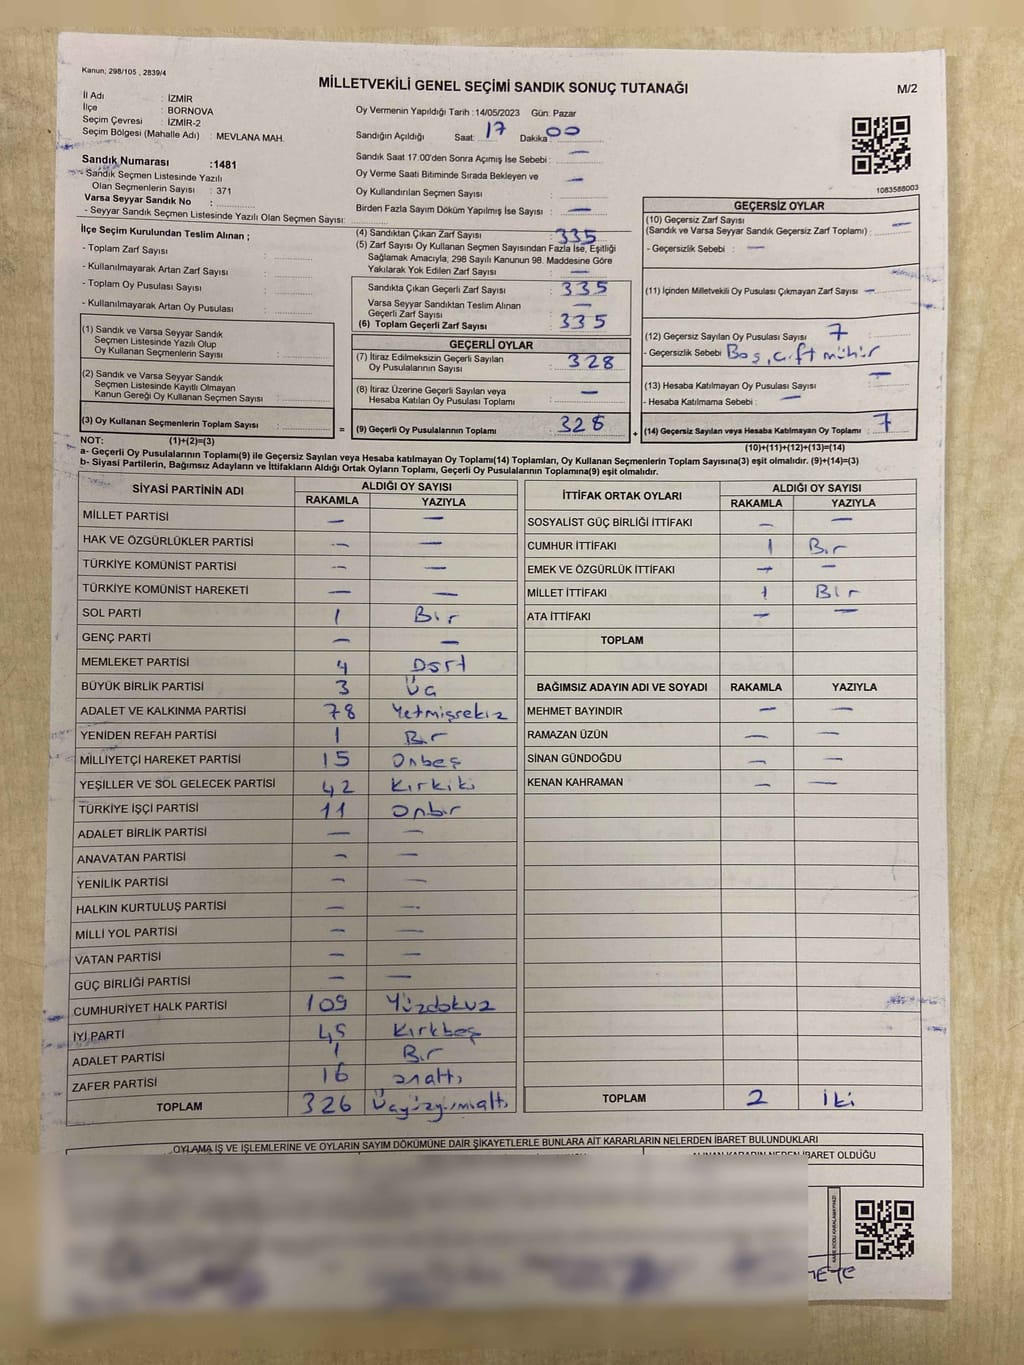 Kanun; 298/105 , 2839/4
MİLLETVEKİLİ GENEL SEÇİMİ SANDIK SONUÇ TUTANAĞI
M/2
İl Adı : İZMİR
İlçe : BORNOVA
Seçim Çevresi : İZMİR-2
Seçim Bölgesi (Mahalle Adı) : MEVLANA MAH.
Sandık Numarası :1481
Sandık Seçmen Listesinde Yazılı
Olan Seçmenlerin Sayısı : 371
Varsa Seyyar Sandık No :
- Seyyar Sandık Seçmen Listesinde Yazılı Olan Seçmen Sayısı:
Oy Vermenin Yapıldığı Tarih : 14/05/2023 Gün: Pazar
Sandığın Açıldığı Saat: 17 Dakika: 00
Sandık Saat 17:00'den Sonra Açımış İse Sebebi : —
Oy Verme Saati Bitiminde Sırada Bekleyen ve
Oy Kullandırılan Seçmen Sayısı : —
Birden Fazla Sayım Döküm Yapılmış İse Sayısı : —
1083588003
İlçe Seçim Kurulundan Teslim Alınan ;
- Toplam Zarf Sayısı :
- Kullanılmayarak Artan Zarf Sayısı :
- Toplam Oy Pusulası Sayısı :
- Kullanılmayarak Artan Oy Pusulası :
(1) Sandık ve Varsa Seyyar Sandık
Seçmen Listesinde Yazılı Olup
Oy Kullanan Seçmenlerin Sayısı :
(2) Sandık ve Varsa Seyyar Sandık
Seçmen Listesinde Kayıtlı Olmayan
Kanun Gereği Oy Kullanan Seçmen Sayısı :
(3) Oy Kullanan Seçmenlerin Toplam Sayısı :
(4) Sandıktan Çıkan Zarf Sayısı : 335
(5) Zarf Sayısı Oy Kullanan Seçmen Sayısından Fazla İse, Eşitliği
Sağlamak Amacıyla, 298 Sayılı Kanunun 98. Maddesine Göre
Yakılarak Yok Edilen Zarf Sayısı : —
Sandıkta Çıkan Geçerli Zarf Sayısı : 335
Varsa Seyyar Sandıktan Teslim Alınan
Geçerli Zarf Sayısı : —
(6) Toplam Geçerli Zarf Sayısı : 335
GEÇERLİ OYLAR
(7) İtiraz Edilmeksizin Geçerli Sayılan
Oy Pusulalarının Sayısı : 328
(8) İtiraz Üzerine Geçerli Sayılan veya
Hesaba Katılan Oy Pusulası Toplamı : —
= (9) Geçerli Oy Pusulalarının Toplamı : 328 +
GEÇERSİZ OYLAR
(10) Geçersiz Zarf Sayısı
(Sandık ve Varsa Seyyar Sandık Geçersiz Zarf Toplamı) : —
- Geçersizlik Sebebi : —
(11) İçinden Milletvekili Oy Pusulası Çıkmayan Zarf Sayısı : —
(12) Geçersiz Sayılan Oy Pusulası Sayısı : 7
- Geçersizlik Sebebi : Boş, çift mühür
(13) Hesaba Katılmayan Oy Pusulası Sayısı : —
- Hesaba Katılmama Sebebi : —
(14) Geçersiz Sayılan veya Hesaba Katılmayan Oy Toplamı : 7
NOT: (1)+(2)=(3)
(10)+(11)+(12)+(13)=(14)
a- Geçerli Oy Pusulalarının Toplamı(9) ile Geçersiz Sayılan veya Hesaba katılmayan Oy Toplamı(14) Toplamları, Oy Kullanan Seçmenlerin Toplam Sayısına(3) eşit olmalıdır. (9)+(14)=(3)
b- Siyasi Partilerin, Bağımsız Adayların ve İttifakların Aldığı Ortak Oyların Toplamı, Geçerli Oy Pusulalarının Toplamına(9) eşit olmalıdır.
SİYASİ PARTİNİN ADI ALDIĞI OY SAYISI
RAKAMLA YAZIYLA
MİLLET PARTİSİ — —
HAK VE ÖZGÜRLÜKLER PARTİSİ — —
TÜRKİYE KOMÜNİST PARTİSİ — —
TÜRKİYE KOMÜNİST HAREKETİ — —
SOL PARTİ 1 Bir
GENÇ PARTİ — —
MEMLEKET PARTİSİ 4 Dört
BÜYÜK BİRLİK PARTİSİ 3 Üç
ADALET VE KALKINMA PARTİSİ 78 Yetmişsekiz
YENİDEN REFAH PARTİSİ 1 Bir
MİLLİYETÇİ HAREKET PARTİSİ 15 Onbeş
YEŞİLLER VE SOL GELECEK PARTİSİ 42 Kırkiki
TÜRKİYE İŞÇİ PARTİSİ 11 Onbir
ADALET BİRLİK PARTİSİ — —
ANAVATAN PARTİSİ — —
YENİLİK PARTİSİ — —
HALKIN KURTULUŞ PARTİSİ — —
MİLLİ YOL PARTİSİ — —
VATAN PARTİSİ — —
GÜÇ BİRLİĞİ PARTİSİ — —
CUMHURİYET HALK PARTİSİ 109 Yüzdokuz
İYİ PARTİ 45 Kırkbeş
ADALET PARTİSİ 1 Bir
ZAFER PARTİSİ 16 onaltı
TOPLAM 326 Üçyüzyirmialtı
İTTİFAK ORTAK OYLARI ALDIĞI OY SAYISI
RAKAMLA YAZIYLA
SOSYALİST GÜÇ BİRLİĞİ İTTİFAKI — —
CUMHUR İTTİFAKI 1 Bir
EMEK VE ÖZGÜRLÜK İTTİFAKI — —
MİLLET İTTİFAKI 1 Bir
ATA İTTİFAKI — —
TOPLAM
BAĞIMSIZ ADAYIN ADI VE SOYADI RAKAMLA YAZIYLA
MEHMET BAYINDIR — —
RAMAZAN ÜZÜN — —
SİNAN GÜNDOĞDU — —
KENAN KAHRAMAN — —
TOPLAM 2 iki
OYLAMA İŞ VE İŞLEMLERİNE VE OYLARIN SAYIM DÖKÜMÜNE DAİR ŞİKAYETLERLE BUNLARA AİT KARARLARIN NELERDEN İBARET BULUNDUKLARI
ALINAN KARARIN NEDEN İBARET OLDUĞU